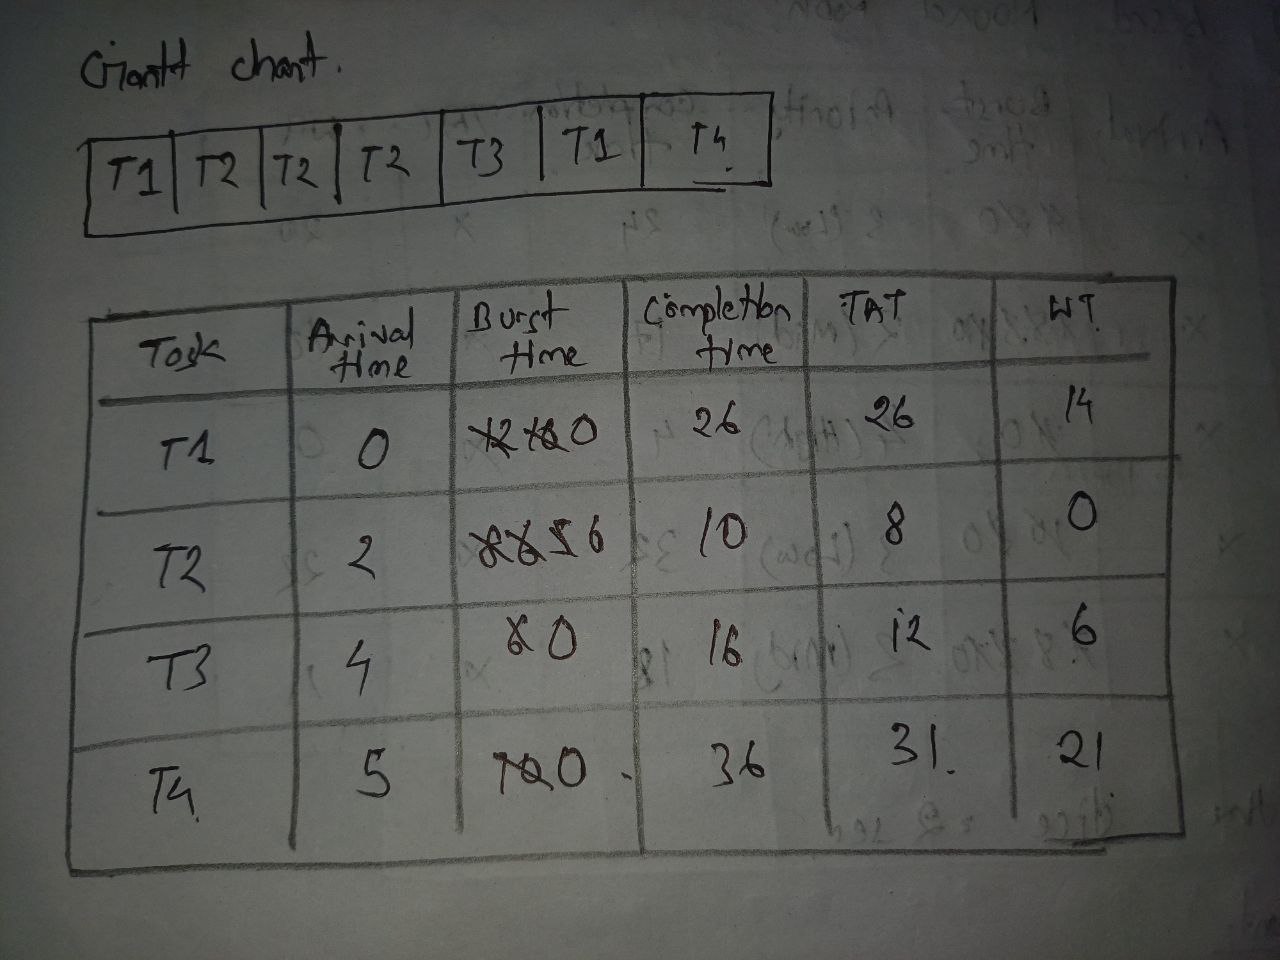 Giantt chart.
T1 T2 T2 T2 T3 T1 T4
Task Arrival time Burst time Completion time TAT WT.
T1 0 12 10 0 26 26 14
T2 2 8 6 5 6 10 8 0
T3 4 6 0 16 12 6
T4 5 10 0 36 31. 21